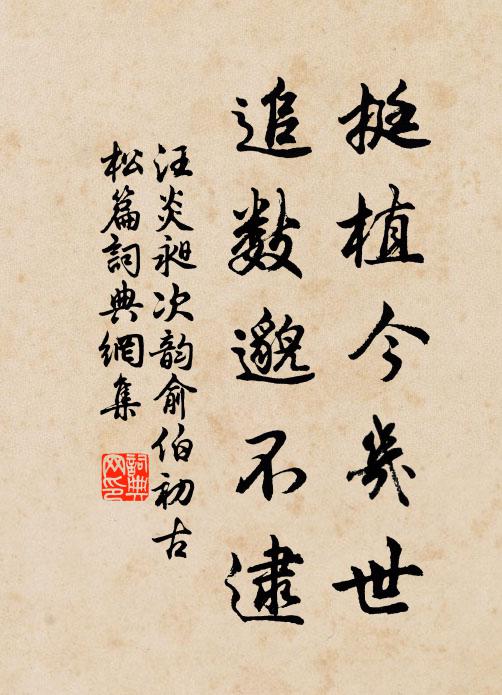 挺植今幾世
追数邈不逮
汪炎昶次韵俞伯初古
松篇詞典網集
詞典
网印